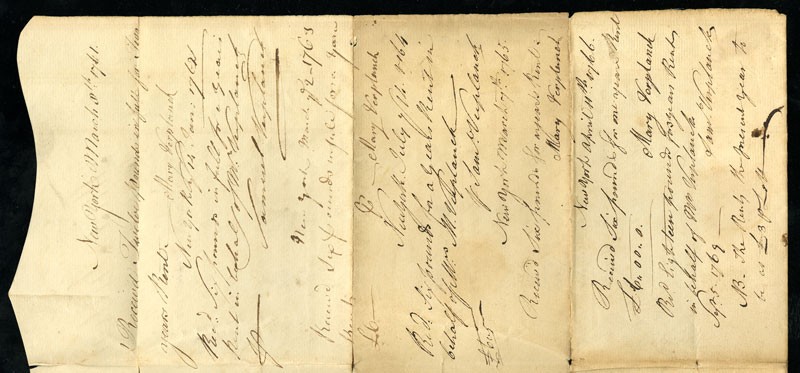 New York March 1761
Received Twelve pounds in full for two
years Rent
Mary Verplanck
New York 1762
Recd Six pounds in full for a years
Rent in behalf of Mrs Verplanck
Samuel Verplanck
New York March 1763
Received Six pounds in full for a years
Rent
£6 — Mary Verplanck
New York July 1764
Recd Six pounds for a Years Rent in
behalf of Mrs M. Verplanck
Saml Verplanck
New York March 1765
Received Six pounds for a years Rent
Mary Verplanck
New York April 11th 1766
Received Six pounds for one years Rent
£6 " 00 " 0
Mary Verplanck
Recd Eighteen pounds for years Rent
in behalf of Mrs Verplanck
Sepr 5 1769 — Saml Verplanck
NB. The Rents the present year to
be as £3